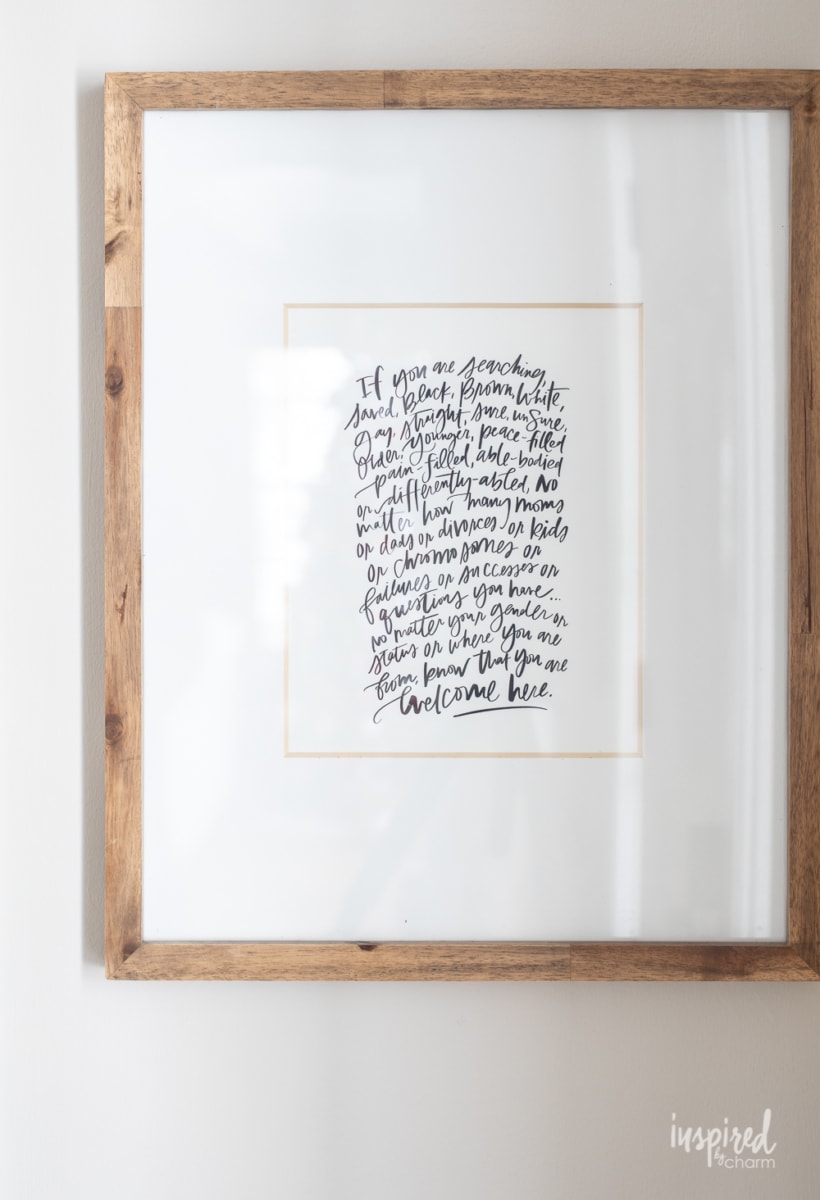 If you are searching,
saved, Black, Brown, White,
gay, straight, sure, unsure,
older, younger, peace-filled
pain-filled, able-bodied
or differently-abled, No
matter how many moms
or dads or divorces or kids
or chromosomes or
failures or successes or
questions you have...
no matter your gender or
status or where you are
from, know that you are
Welcome here.
inspired
by charm